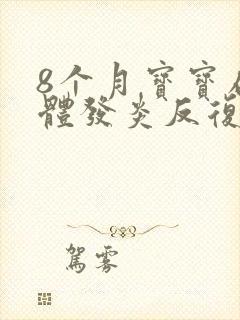 8个月寶寶
體發炎反復
駕霧